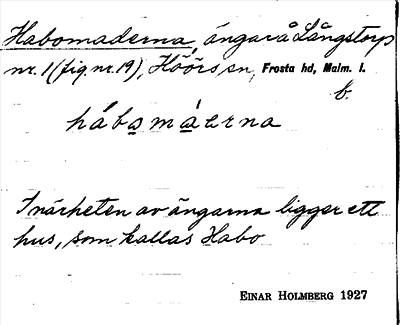 Habomaderna, ängar å Långstorp
nr. 1 (fig nr. 19), Höörs sn, Frosta hd, Malm. l.
b.
hábamáerna
I närheten av ängarna ligger ett
hus, som kallas Habo
EINAR HOLMBERG 1927